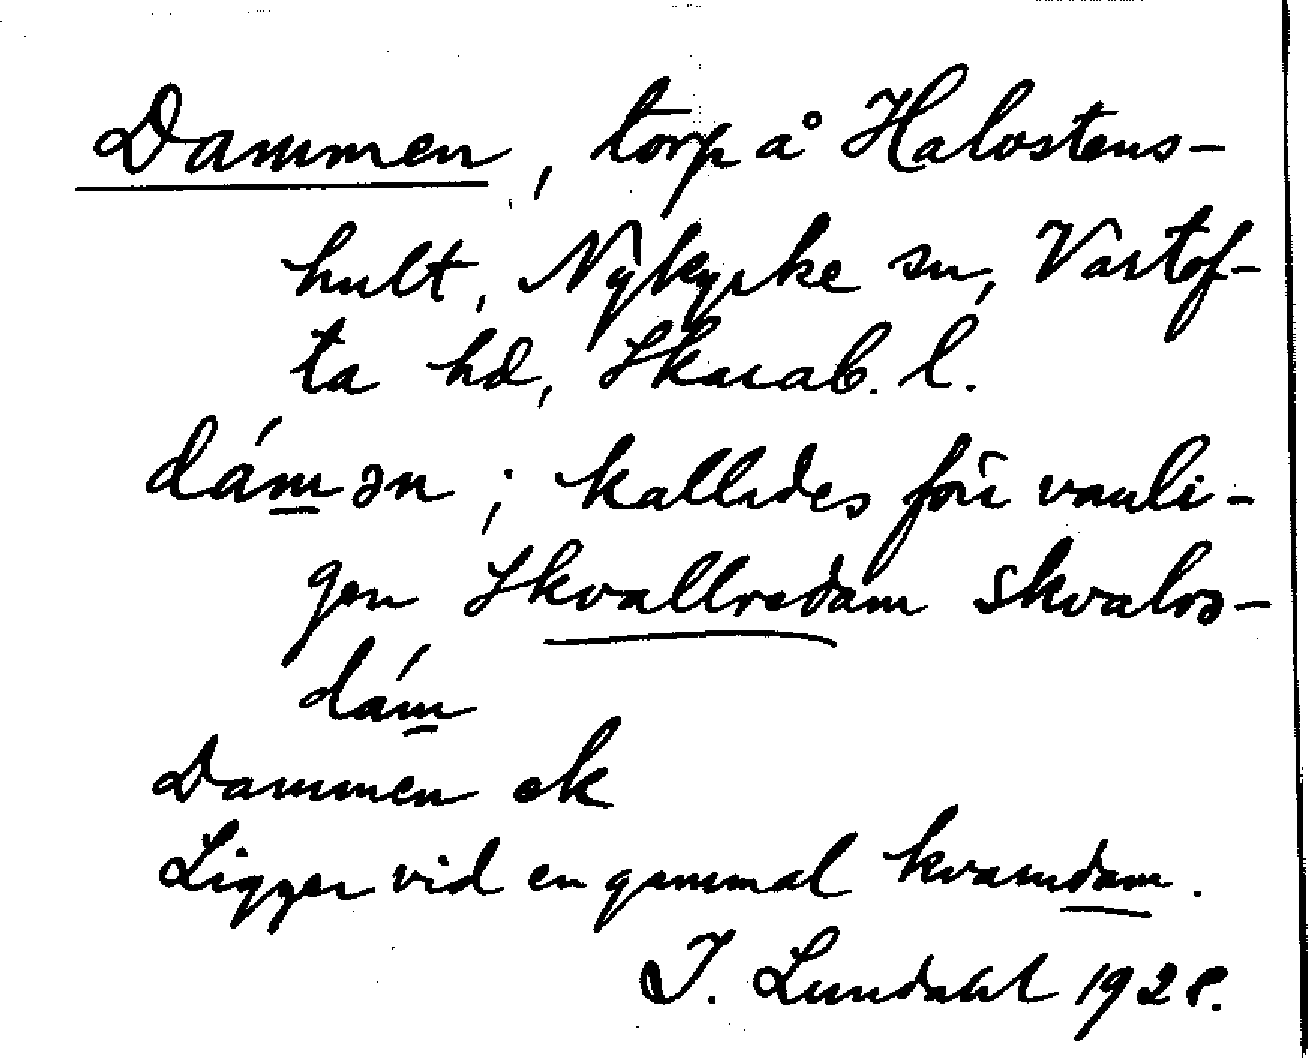 Dammen, torp å Halvstens-
hult, Nykyrke sn, Vartof-
ta hd, Skarab. l.
dámən; kallades förr vanli-
gen Skvallredam skvalrə-
dám
Dammen ek
Ligger vid en gammal kvarndam.
I. Lundahl 1928.